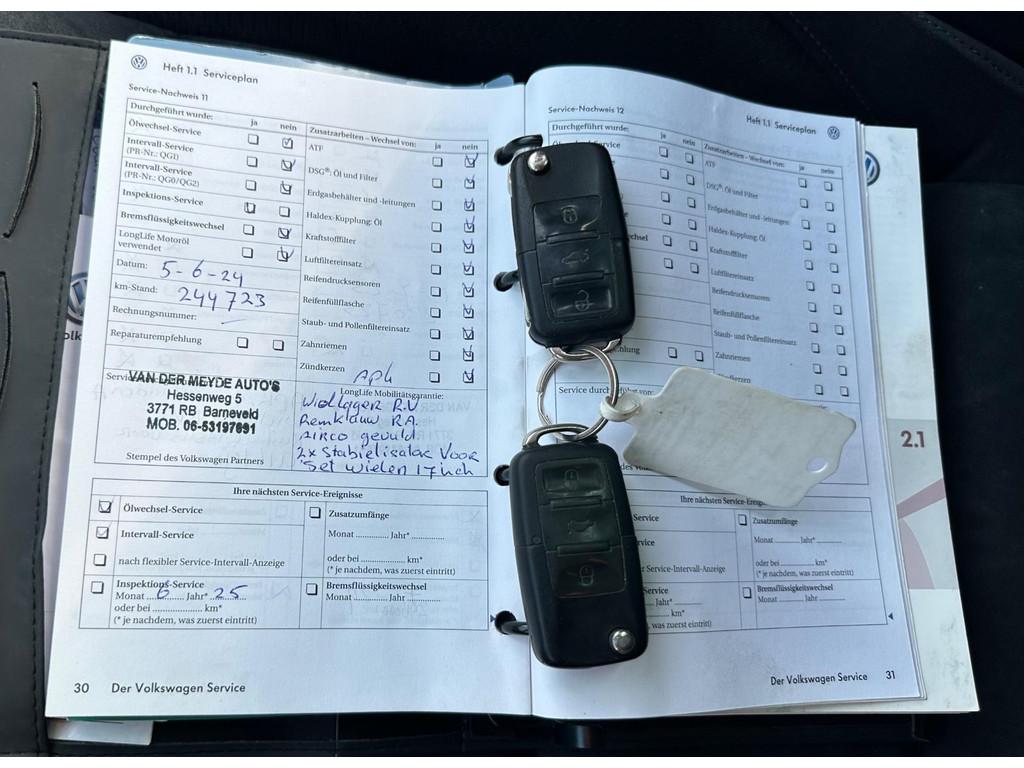 Heft 1.1 Serviceplan
Service-Nachweis 11
Durchgeführt wurde: ja nein
Ölwechsel-Service
Intervall-Service
(PR-Nr.: QG1)
Intervall-Service
(PR-Nr.: QG0/QG2)
Inspektions-Service
Bremsflüssigkeitswechsel
LongLife Motoröl
verwendet
Datum: 5-6-24
km-Stand: 244723
Rechnungsnummer:
Reparaturempfehlung
VAN DER MEYDE AUTO'S
Hessenweg 5
3771 RB Barneveld
MOB. 06-53197691
Stempel des Volkswagen Partners
Zusatzarbeiten – Wechsel von: ja nein
ATF
DSG®: Öl und Filter
Erdgasbehälter und -leitungen
Haldex-Kupplung: Öl
Kraftstofffilter
Luftfiltereinsatz
Reifendrucksensoren
Reifenfüllflasche
Staub- und Pollenfiltereinsatz
Zahnriemen
Zündkerzen
APK
LongLife Mobilitätsgarantie:
Wiellager R.V
Remklauw R.A.
Airco gevuld.
2x Stabielisator Voor
Set wielen 17 inch
Ihre nächsten Service-Ereignisse
Ölwechsel-Service
Intervall-Service
nach flexibler Service-Intervall-Anzeige
Inspektions-Service
Monat 6 Jahr* 25
oder bei .................... km*
(* je nachdem, was zuerst eintritt)
Zusatzumfänge
Monat ............ Jahr* ............
oder bei .................... km*
(* je nachdem, was zuerst eintritt)
Bremsflüssigkeitswechsel
Monat ............ Jahr ............
30 Der Volkswagen Service
Heft 1.1 Serviceplan
Service-Nachweis 12
Durchgeführt wurde: ja nein
Zusatzarbeiten – Wechsel von: ja nein
ATF
DSG®: Öl und Filter
Erdgasbehälter und -leitungen
Haldex-Kupplung: Öl
Kraftstofffilter
Luftfiltereinsatz
Reifendrucksensoren
Reifenfüllflasche
Staub- und Pollenfiltereinsatz
Zahnriemen
Ihre nächsten Service-Ereig
Service
Service
Service-Intervall-Anzeige
Service
Jahr*
km*
was zuerst eintritt)
Zusatzumfänge
Monat ............ Jahr* ............
oder bei .................... km*
(* je nachdem, was zuerst eintritt)
Bremsflüssigkeitswechsel
Monat ............ Jahr ............
Der Volkswagen Service 31
2.1